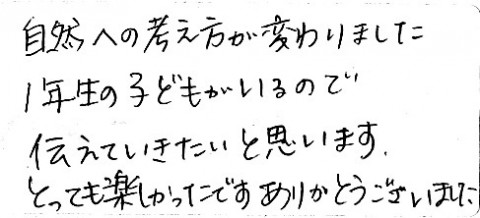 自然への考え方が変わりました
1年生の子どもがいるので
伝えていきたいと思います.
とっても楽しかったです ありがとうございました